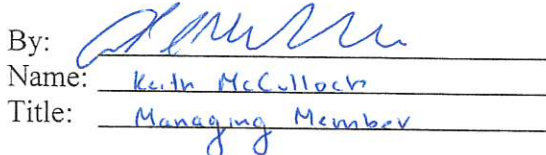 By:
Name: Keith McCulloch
Title: Managing Member